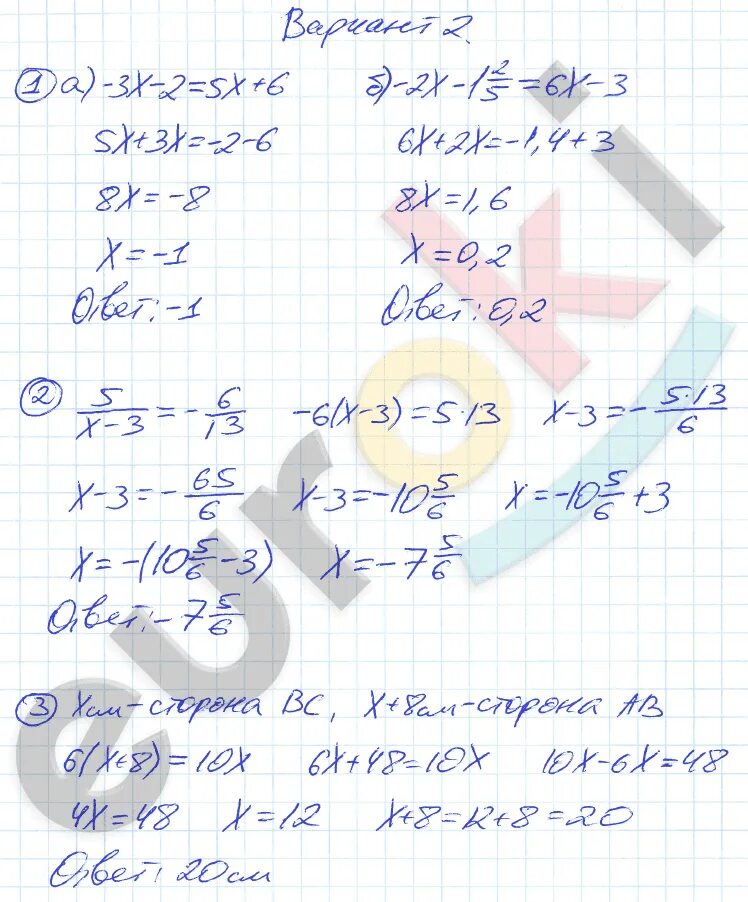 Вариант 2.
① а) -3x-2=5x+6 б) -2x-1 2/5=6x-3
5x+3x=-2-6 6x+2x=-1,4+3
8x=-8 8x=1,6
x=-1 x=0,2
Ответ: -1 Ответ: 0,2
② 5/(x-3)=-6/13 -6(x-3)=5·13 x-3=-5·13/6
x-3=-65/6 x-3=-10 5/6 x=-10 5/6+3
x=-(10 5/6-3) x=-7 5/6
Ответ: -7 5/6
③ xсм-сторона BC, x+8см-сторона AB
6(x+8)=10x 6x+48=10x 10x-6x=48
4x=48 x=12 x+8=12+8=20
Ответ: 20см
euroki